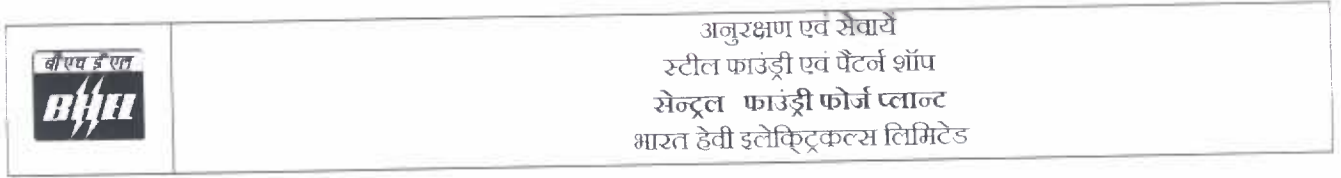 बीएच ई एल
BHEL
अनुरक्षण एवं सेवायें
स्टील फाउंड्री एवं पैटर्न शॉप
सेन्ट्रल फाउंड्री फोर्ज प्लान्ट
भारत हेवी इलेक्ट्रिकल्स लिमिटेड